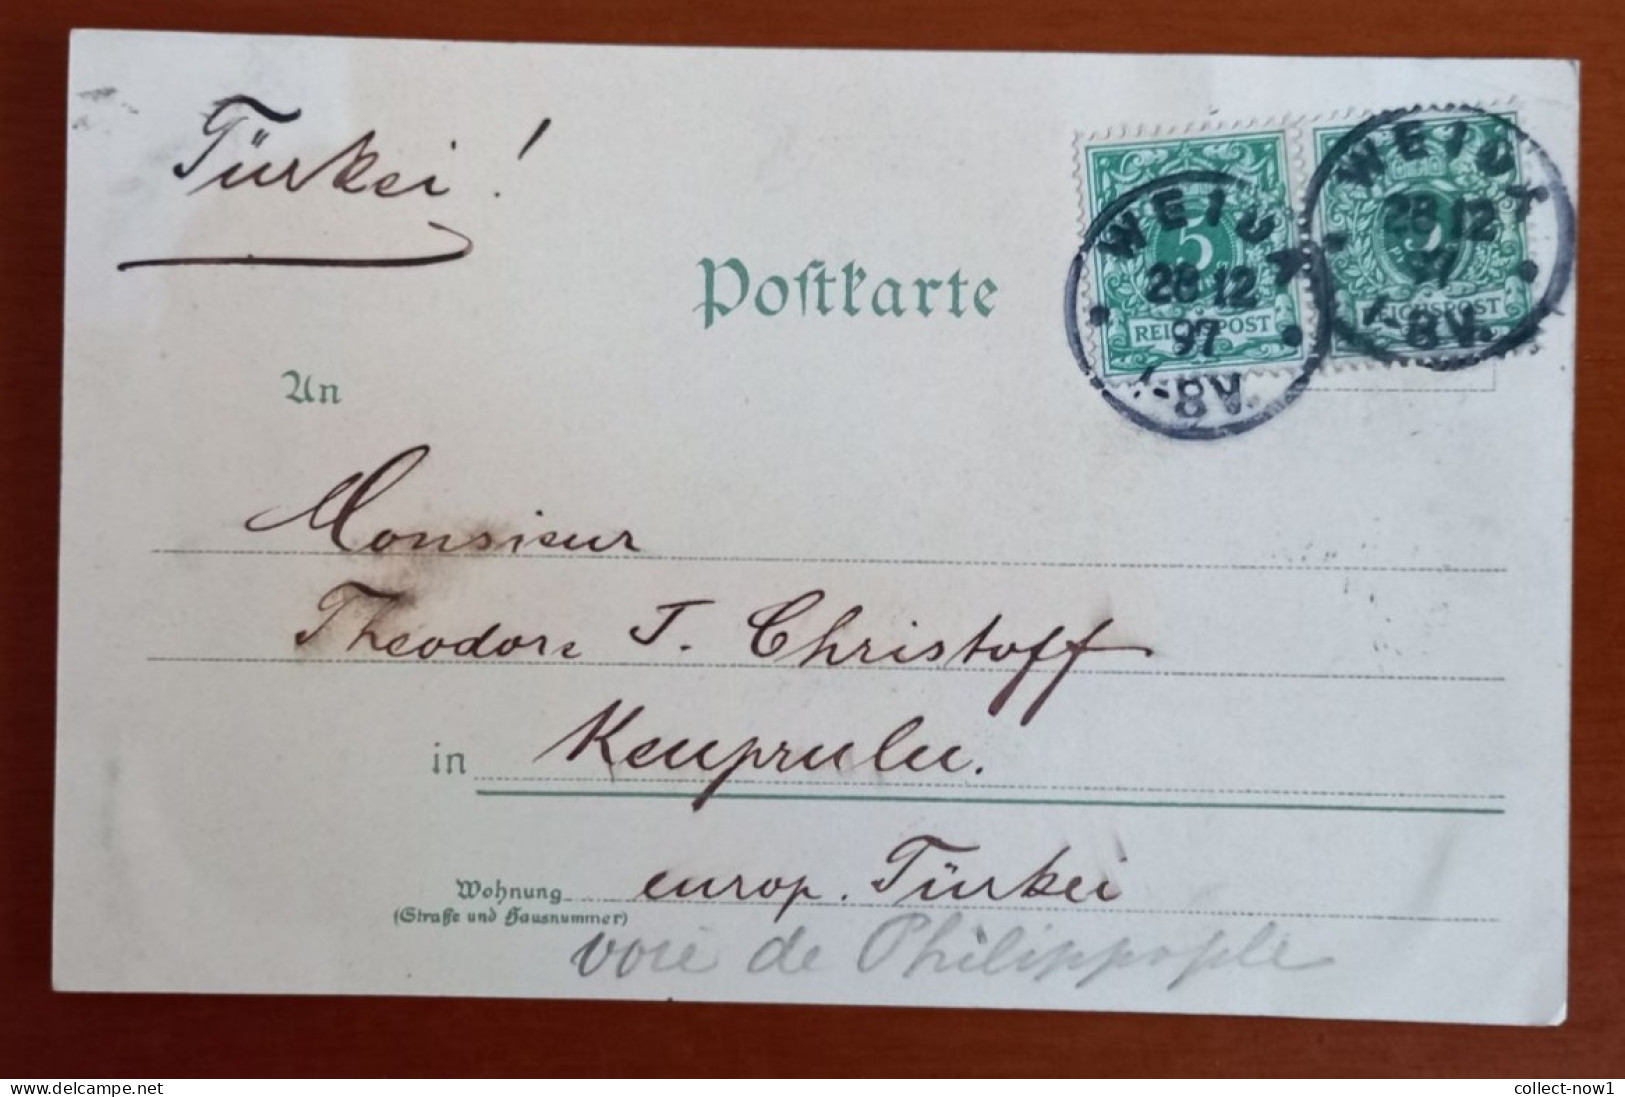 Türkei!
WEIDA
28 12
97
7-8V.
5
REICHSPOST
WEIDA
28 12
97
7-8V.
5
REICHSPOST
Postkarte
An
Monsieur
Theodore J. Christoff
in Keuprulu.
Wohnung europ. Türkei
(Straße und Hausnummer)
voie de Philippople
www.delcampe.net
collect-now1